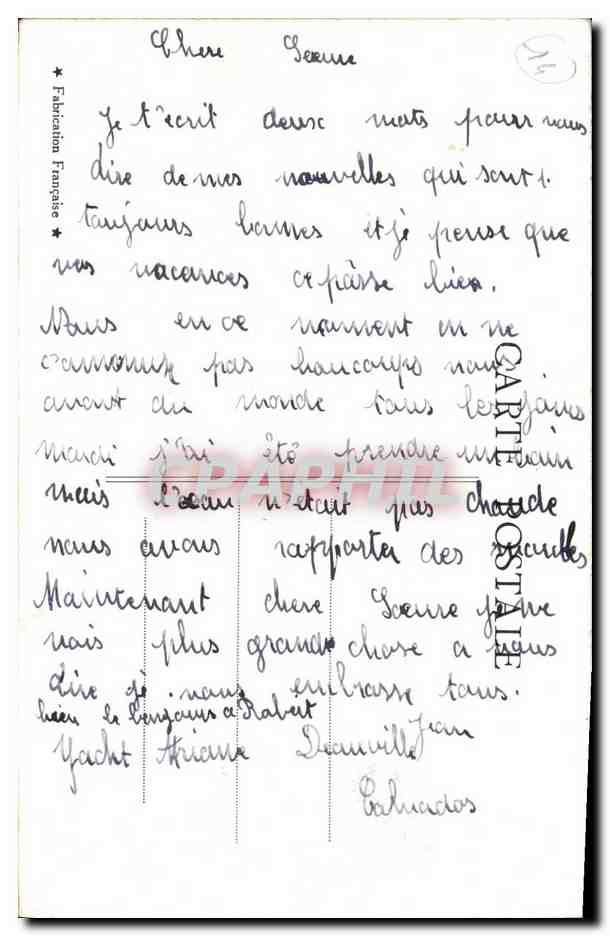 Chere Soeure
14
Je t'ecrit deux mots pour vous
dire de mes nouvelles qui sont
toujours bonnes et je pense que
vos vacances ce pâsse bien.
Nous en ce moment on ne
s'amouse pas beaucoups nous
avont du monde tous les jours
mardi j'ai étô prendre un bain
mais l'eau n'etait pas chaude
nous avons rapporter des moules
Maintenant chere Soeure je ne
vois plus grande chose a vous
dire je vous embrasse tous.
bien le bonjours a Robert
Jean
Yacht Ariane Deauville
Calvados
★ Fabrication Française ★
CARTE POSTALE
CPAPHIL